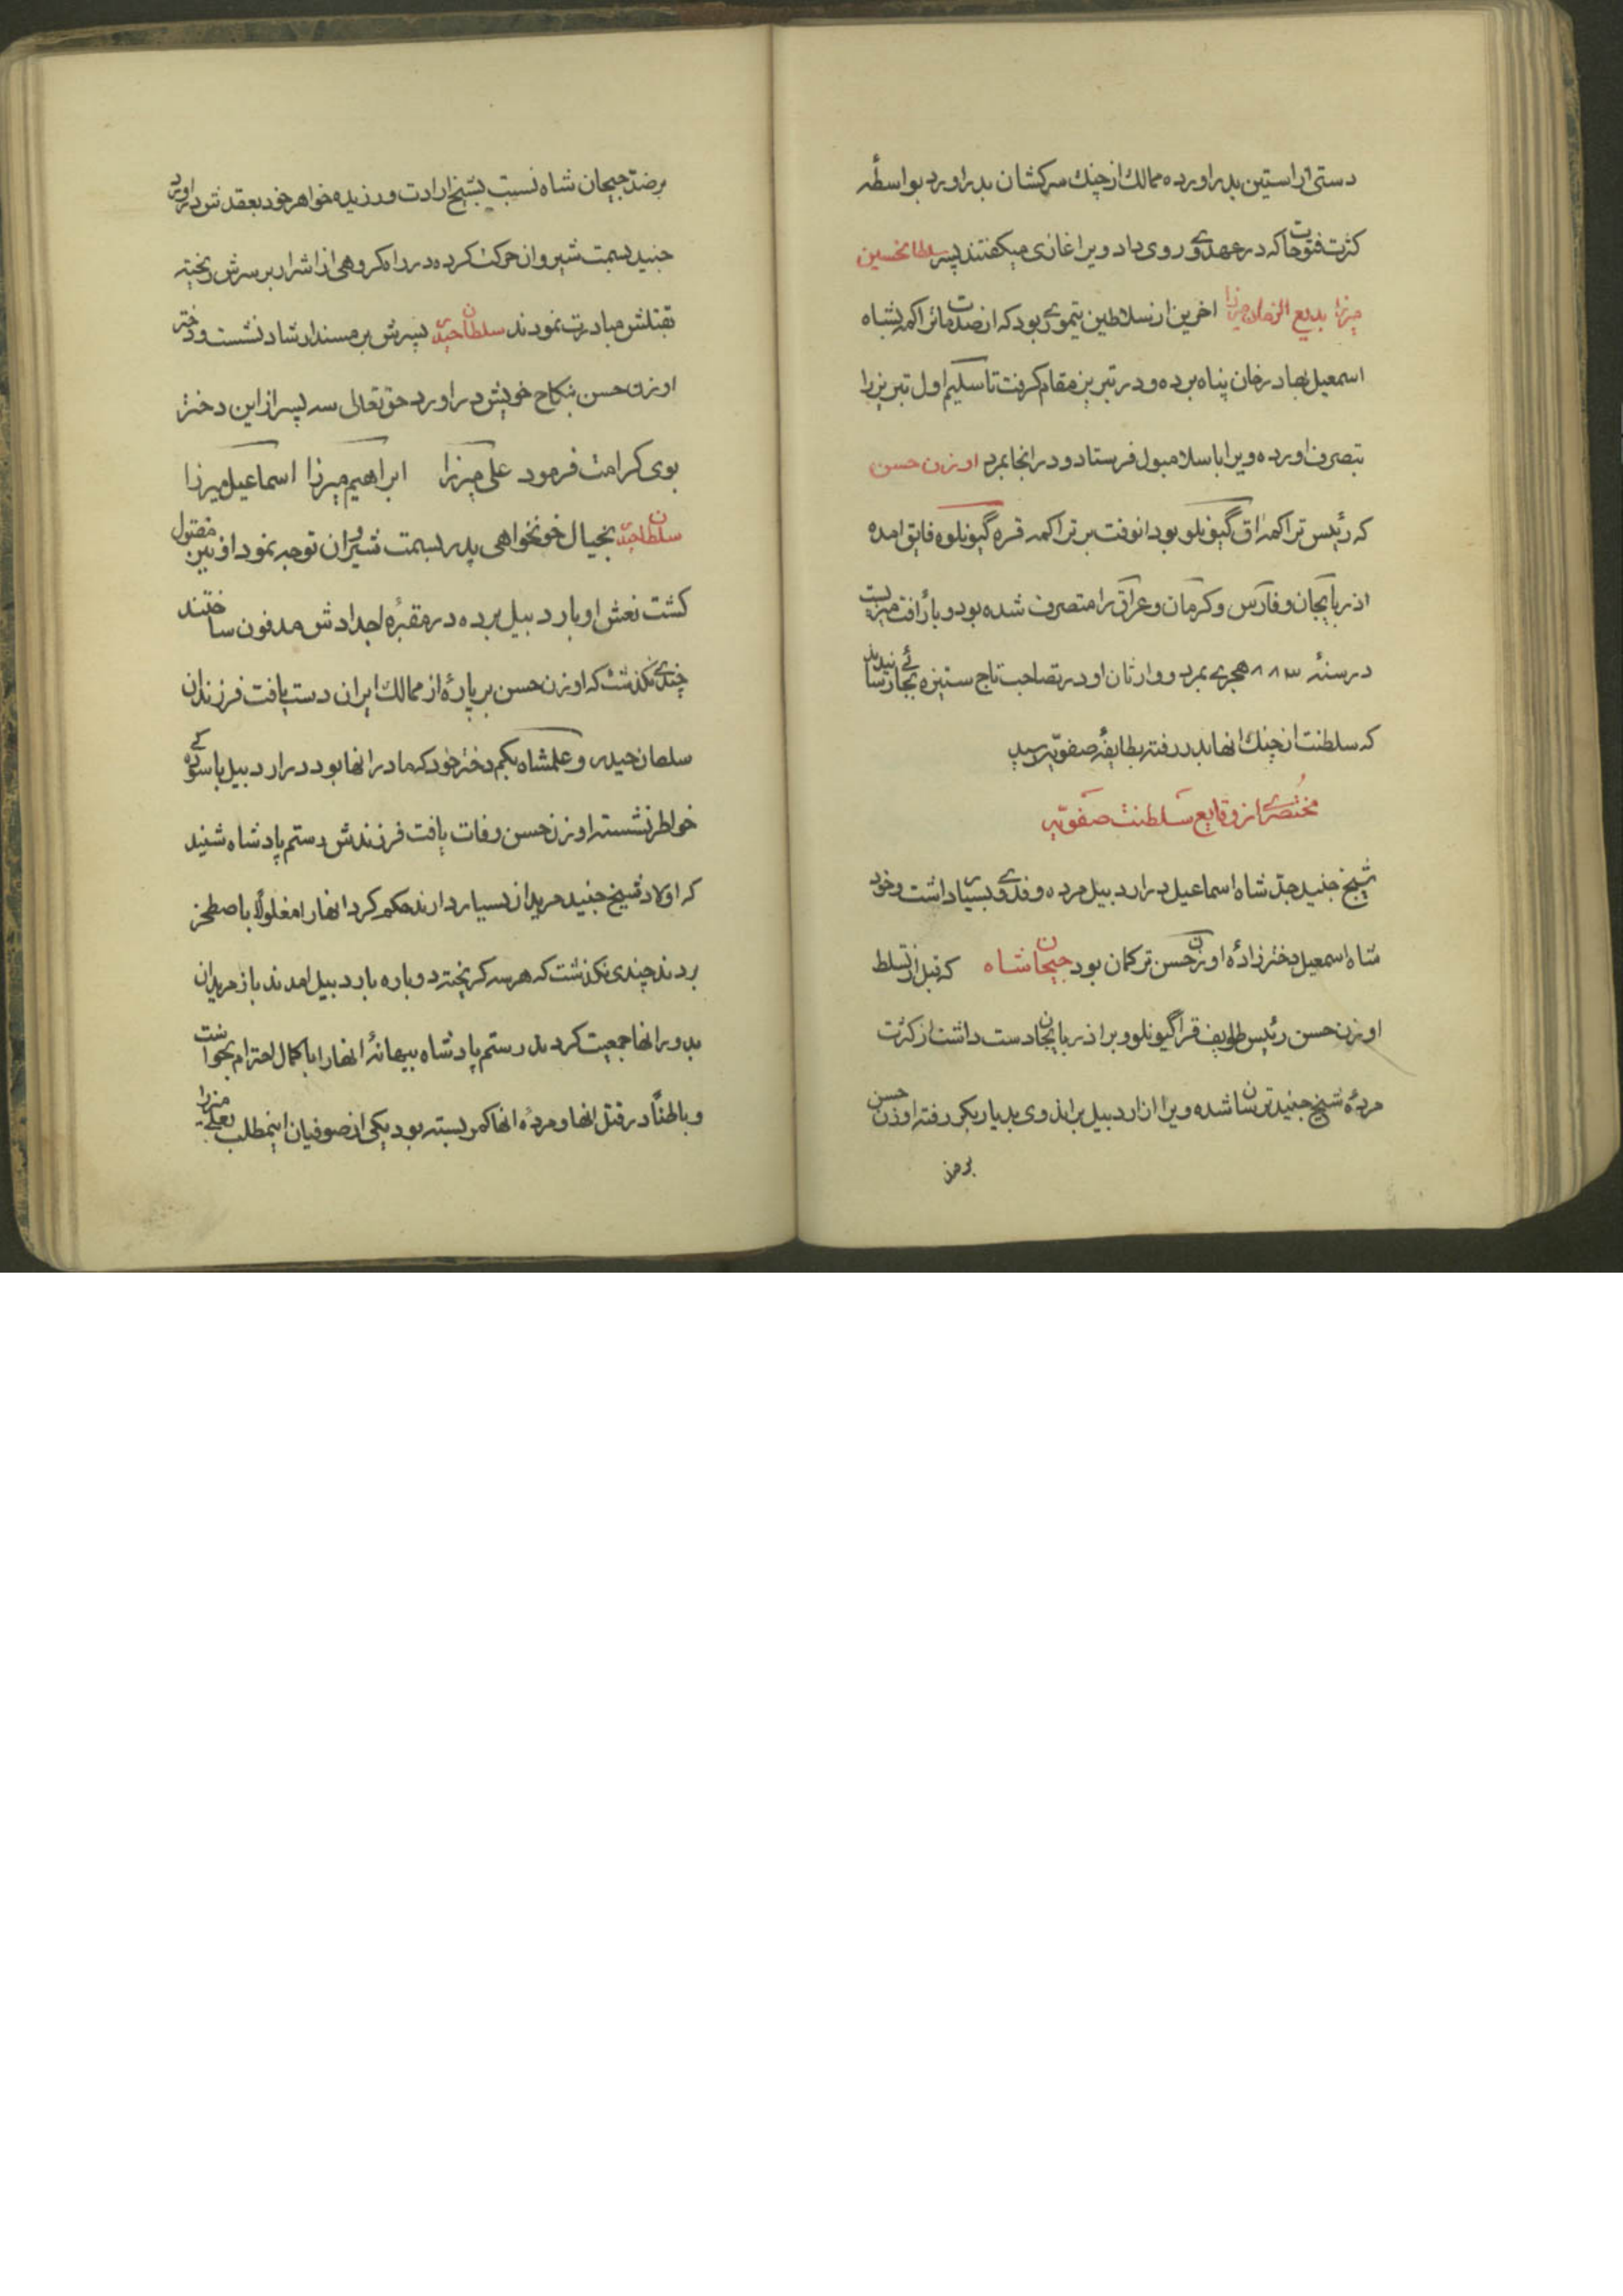 دستی از استین بدر اورده ممالک از چنک سرکشان بدر اورد بواسطهٔ
کثرت فتوحات که در عهد وی روی داد ویرا غازی میکفتند پسر سلطانحسین
میرزا بدیع الزمان میرزا اخرین از سلاطین تیموری بود که از صدمات تراکمه بشاه
اسمعیل بهادر خان پناه برده و در تبریز مقام کرفت تا سلیم اول تبریز را
بتصرف اورده ویرا باسلامبول فرستاد و در انجا بمرد اوزن حسن
که رئیس تراکمه اق گیونلو بود انوقت بر تراکمه قره گیونلو فایق امده
اذربایجان و فارس و کرمان و عراق را متصرف شده بود و با رافت میزیست
در سنهٔ ۸۸۳ هجری بمرد و وارثان او در تصاحب تاج ستیزه بجائی رسانیدند
که سلطنت از چنک انها بدر رفته بطایفهٔ صفویه رسید
مختصری از وقایع سلطنت صفویه
شیخ جنید جد شاه اسماعیل در اردبیل مرده و فدوی بسیار داشت و خود
شاه اسمعیل دختر زادهٔ اوزن حسن ترکمان بود جیحان شاه که قبل از تسلط
اوزن حسن رئیس طوایف قراگیونلو و بر اذربایجان دست داشت از کثرت
مردهٔ شیخ جنید ترسان شده ویرا از اردبیل براند وی بدیار بکر رفته اوزن حسن
بر ضد
بر ضد جیحان شاه نسبت بشیخ ارادت ورزیده خواهر خود بعقدش در اورد
جنید بسمت شیروان حرکت کرده در راه کروهی از اشرار بر سرش ریخته
بقتلش مبادرت نمودند سلطان حیدر پسرش بر مسند ارشاد نشست و دختر
اوزن حسن بنکاح خویش در اورد حق تعالی سه پسر از این دختر
بوی کرامت فرمود علی میرزا ابراهیم میرزا اسماعیل میرزا
سلطان حیدر بخیال خونخواهی پدر بسمت شیروان توجه نمود او نیز مقتول
کشت نعش او باردبیل برده در مقبرهٔ اجدادش مدفون ساختند
چندی نکذشت که اوزن حسن بر پارهٔ از ممالک ایران دست یافت فرزندان
سلطان حیدر و علمشاه بیکم دختر خود که مادر انها بود در اردبیل باسودکی
خواطر نشسته اوزن حسن وفات یافت فرزندش رستم پادشاه شنید
که اولاد شیخ جنید مریدان بسیار دارند حکم کرد انها را مغلولا باصطخر
بردند چندی نکذشت که هر سه کریخته دوباره باردبیل امدند باز مریدان
بدور انها جمعیت کردند رستم پادشاه ببهانهٔ انها را با کمال احترام بخواست
و باطنا در قتل انها و مردهٔ انها کمر بسته بود یکی از صوفیان اینمطلب بعلی میرزا